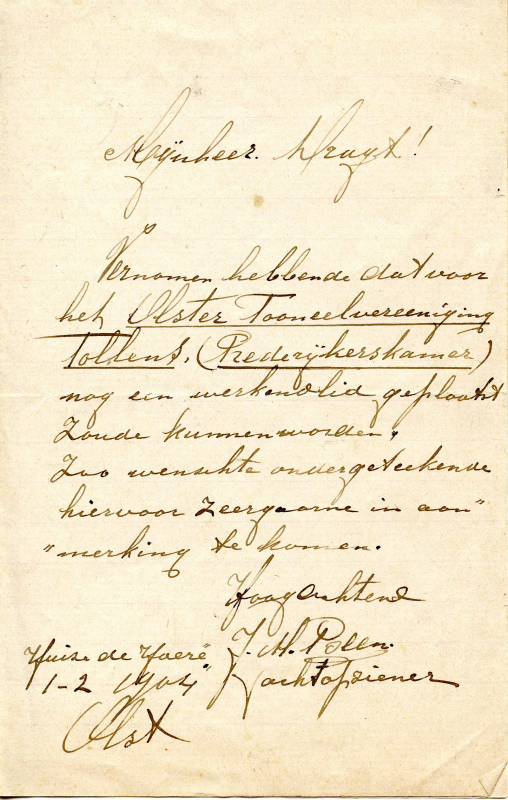 Mijnheer. Dragt!
Vernomen hebbende dat voor
het Olster Tooneelvereeniging
Tollens, (Rederijkerskamer)
nog een werkendlid geplaatst
Zoude kunnen worden.
Zoo wenschte ondergeteekende
hiervoor Zeergaarne in aan"
"merking te komen.
Hoogachtend
J. H. Poen.
Jachtopziener
Huize de Haere"
1-2 1904"
Olst